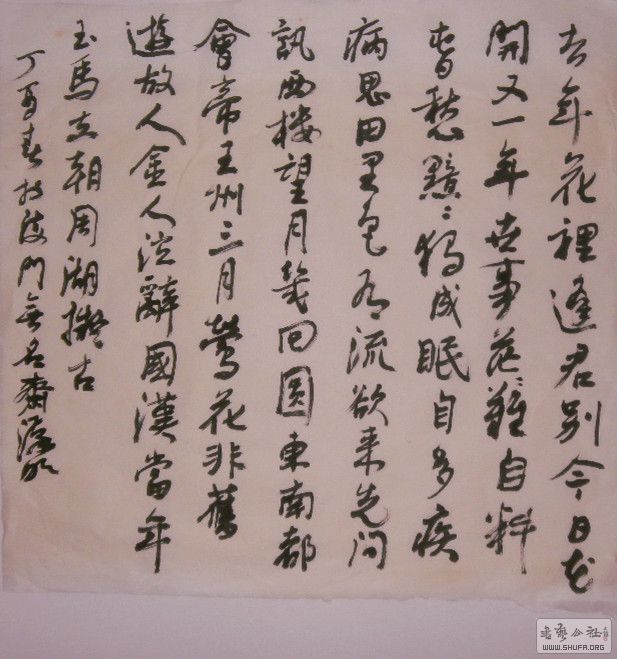 去年花裡逢君別今日花
開又一年世事茫難自料
春愁黯〻獨成眠自多疾
病思田里邑有流欲來先問
訊西樓望月幾回圓東南都
會帝王州三月鶯花非舊
遊故人金人泣辭國漢當年
玉馬去朝周湖擬古
丁春於海門無名齋
www.SHUFA.ORG